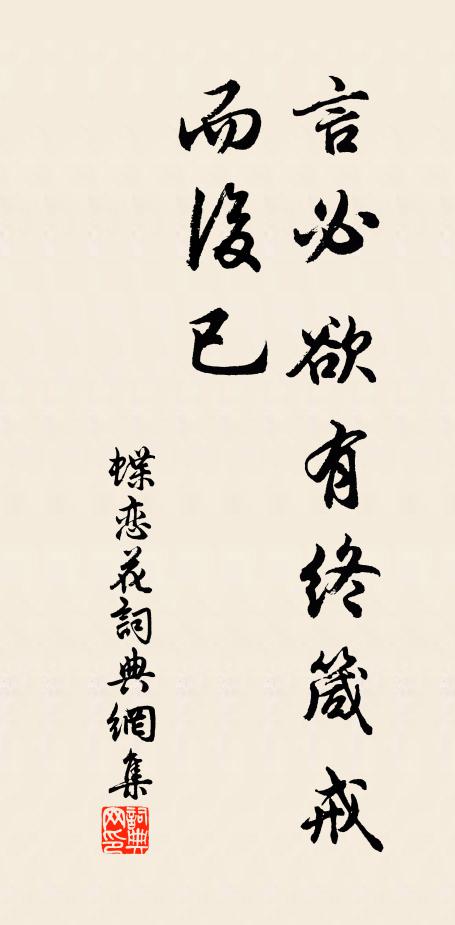 言必欲有終箴戒
而後已
蝶恋花詞典網集
詞典
网印